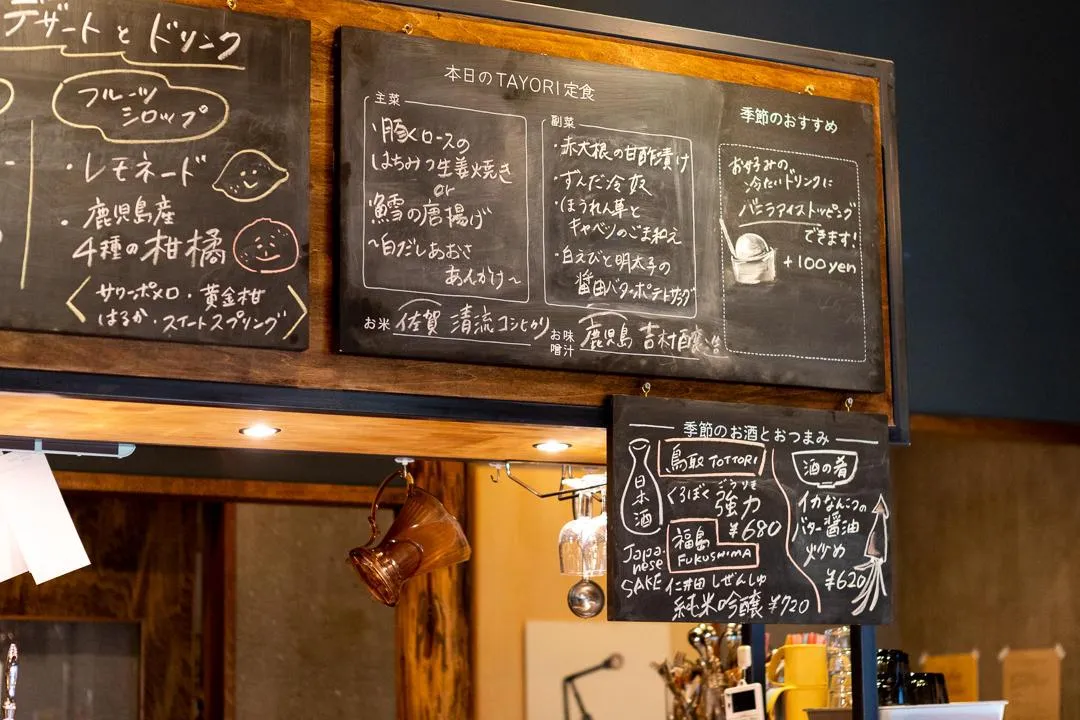 デザートとドリンク
フルーツ
シロップ
・レモネード
・鹿児島産
4種の柑橘
サワーポメロ・黄金柑
はるか・スイートスプリング
本日のTAYORI定食
主菜
・豚ロースの
はちみつ生姜焼き
or
・鱈の唐揚げ
〜白だしあおさ
あんかけ〜
副菜
・赤大根の甘酢漬け
・ずんだ冷奴
・ほうれん草と
キャベツのごま和え
・白えびと明太子の
醤油バターポテトサラダ
お米 佐賀 清流コシヒカリ
お味
噌汁
鹿児島 吉村醸造
季節のおすすめ
お好みの
冷たいドリンクに
バニラアイストッピング
できます!
+100yen
季節のお酒とおつまみ
日本酒
Japa-
nese
SAKE
鳥取 TOTTORI
くろぼく 強力
ごうりき
¥680
福島
FUKUSHIMA
仁井田しぜんしゅ
純米吟醸 ¥720
酒の肴
イカなんこつの
バター醤油
炒め
¥620